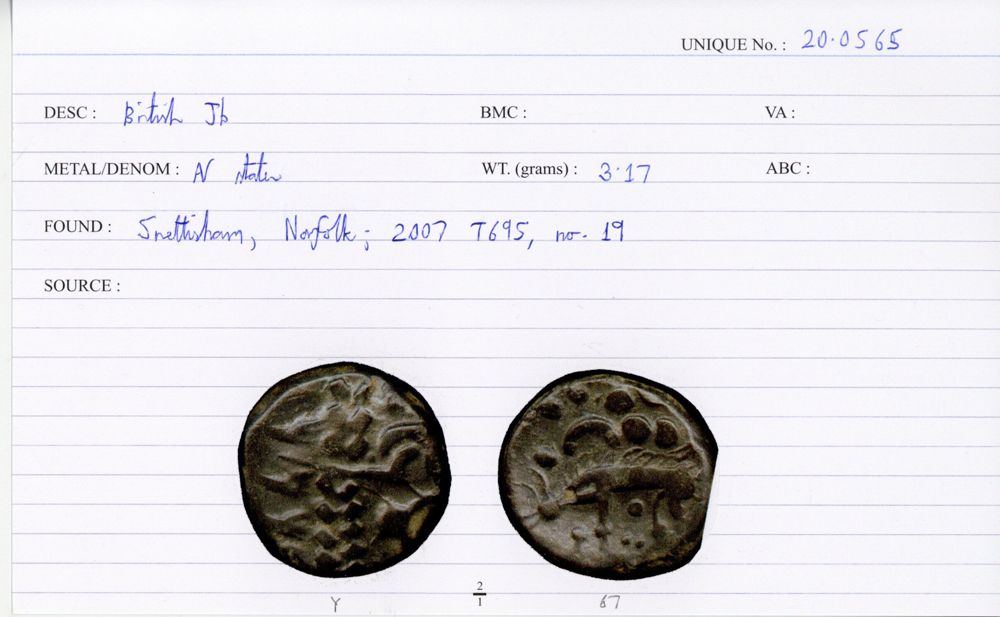 UNIQUE No. : 20·0565
DESC : British Jb BMC : VA :
METAL/DENOM : AV stater WT. (grams) : 3·17 ABC :
FOUND : Snettisham, Norfolk; 2007 T695, no. 19
SOURCE :
2
1
Y 67